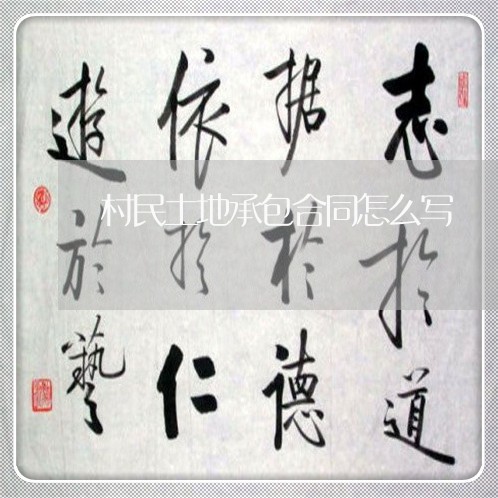 志於道
据於德
依於仁
遊於藝
村民土地承包合同怎么写